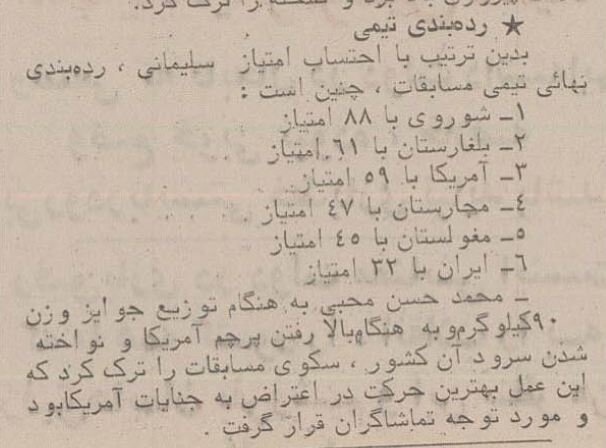 ★ رده‌بندی تیمی
بدین ترتیب با احتساب امتیاز سلیمانی ، رده‌بندی
نهائی تیمی مسابقات ، چنین است :
۱ـ شوروی با ۸۸ امتیاز
۲ـ بلغارستان با ٦۱ امتیاز
۳ـ آمریکا با ۵۹ امتیاز
٤ـ مجارستان با ٤۷ امتیاز
۵ـ مغولستان با ٤۵ امتیاز
٦ـ ایران با ۳۲ امتیاز
ـ محمد حسن محبی به هنگام توزیع جوایز وزن
۹۰کیلوگرم‌و به هنگام‌بالا رفتن پرچم آمریکا و نواخته
شدن سرود آن کشور ، سکوی مسابقات را ترک کرد که
این عمل بهترین حرکت در اعتراض به جنایات آمریکابود
و مورد توجه تماشاگران قرار گرفت .